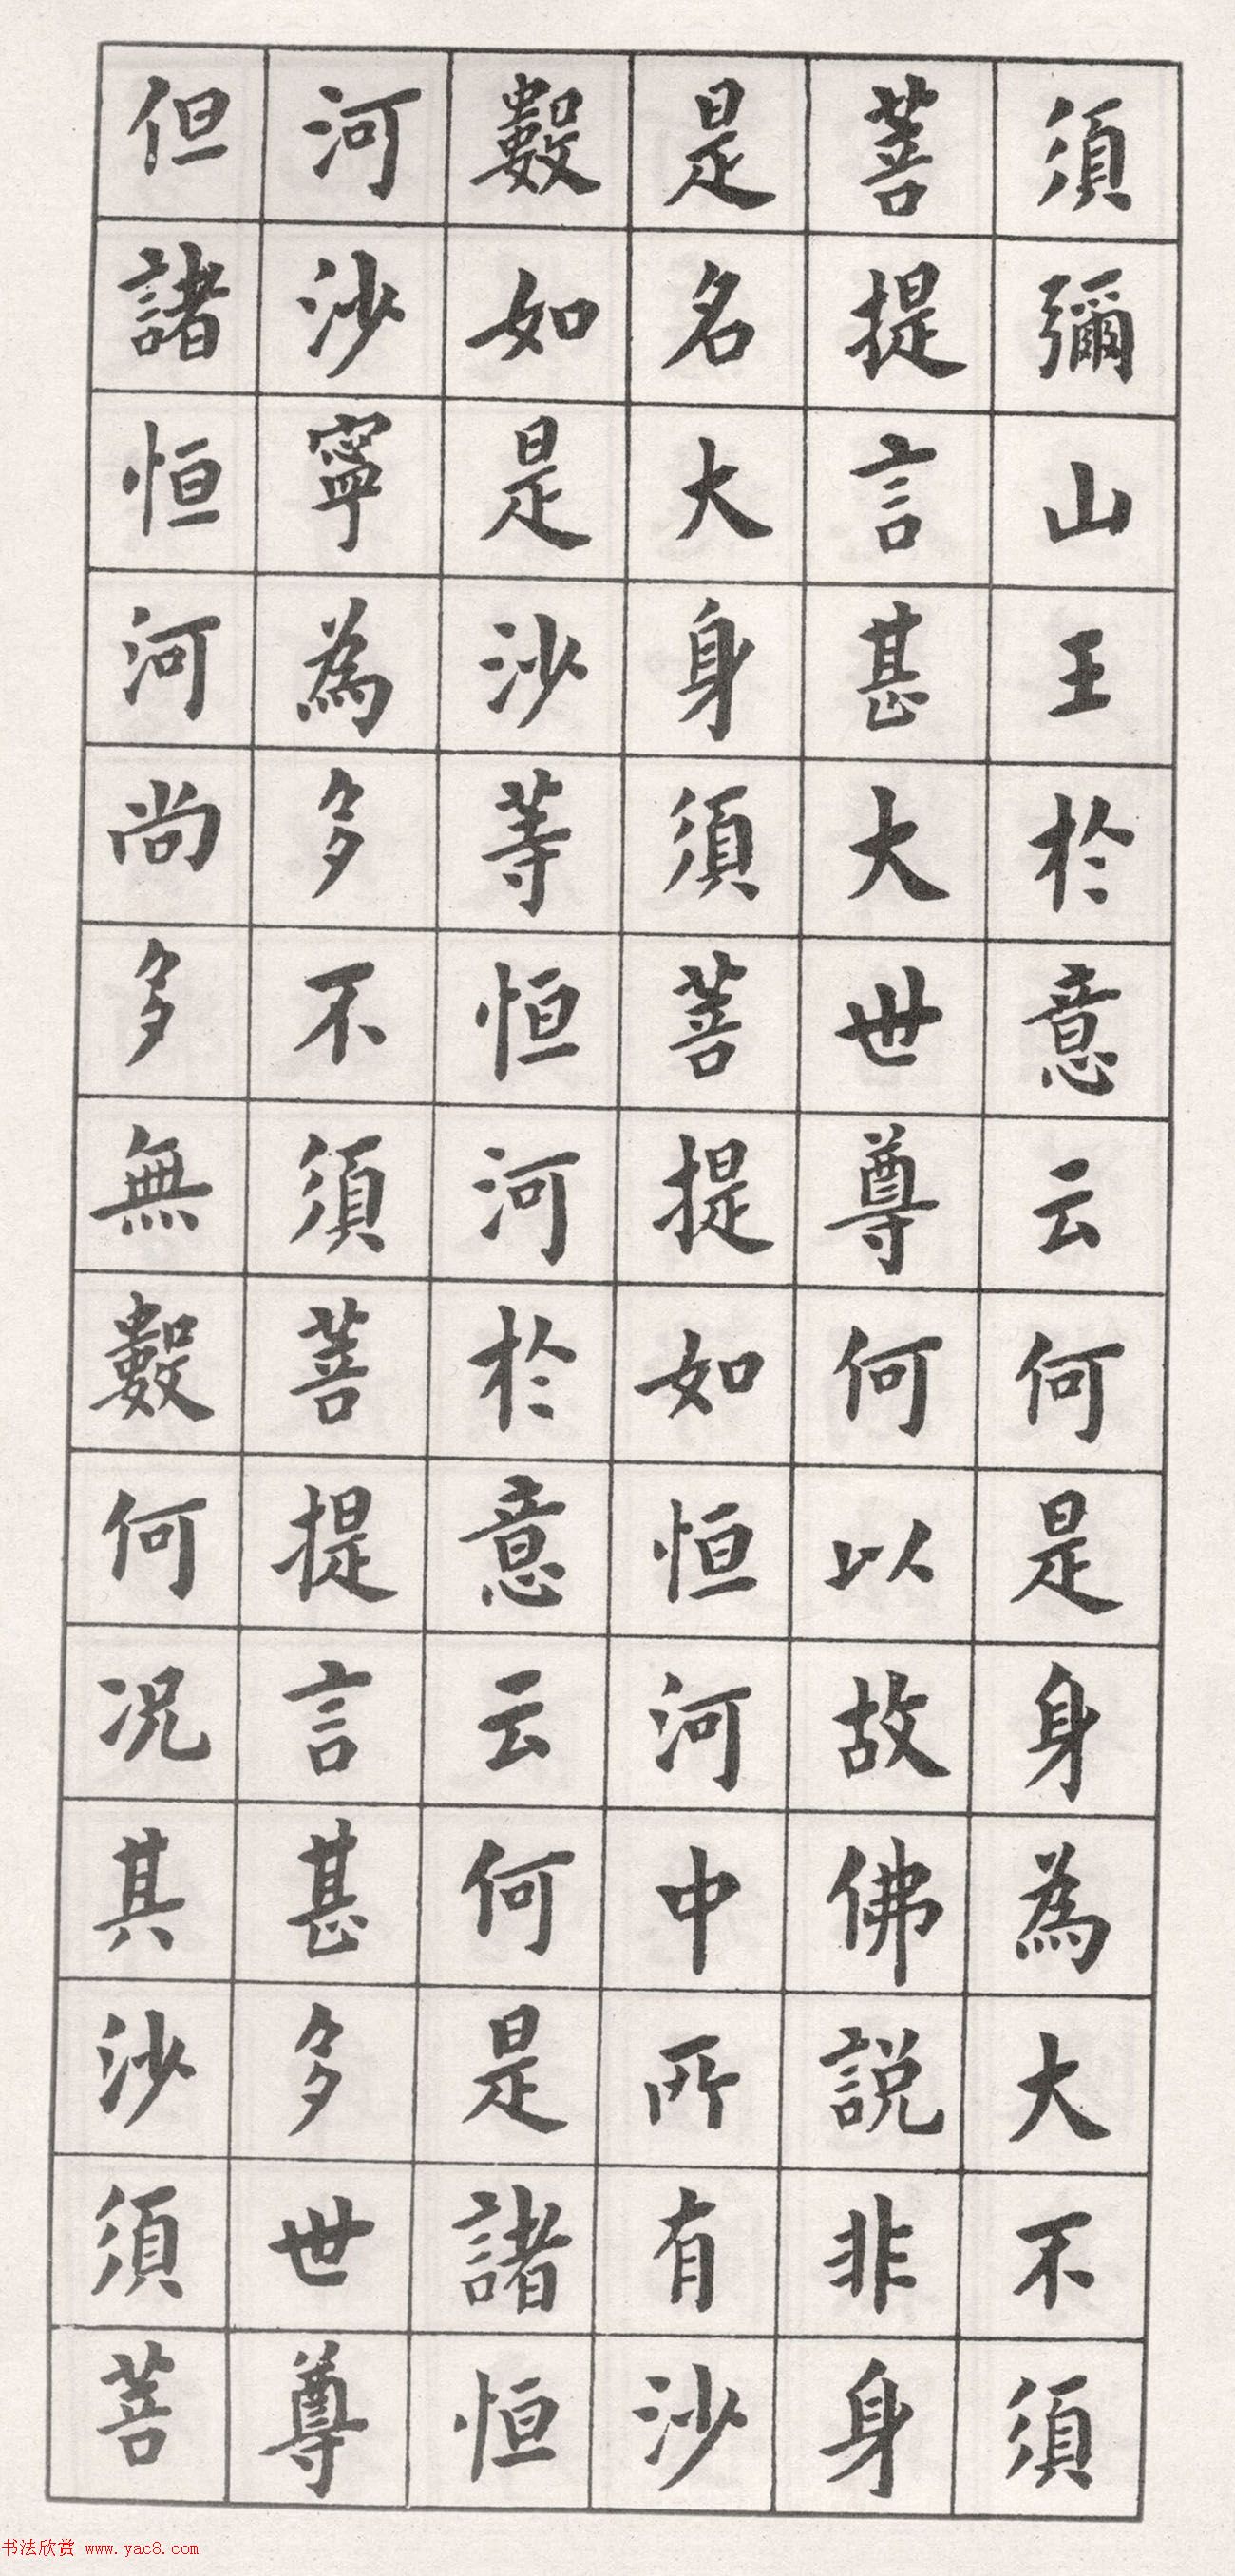 須彌山王於意云何是身為大不須
菩提言甚大世尊何以故佛説非身
是名大身須菩提如恒河中所有沙
數如是沙等恒河於意云何是諸恒
河沙寧為多不須菩提言甚多世尊
但諸恒河尚多無數何况其沙須菩
书法欣赏 www.yac8.com